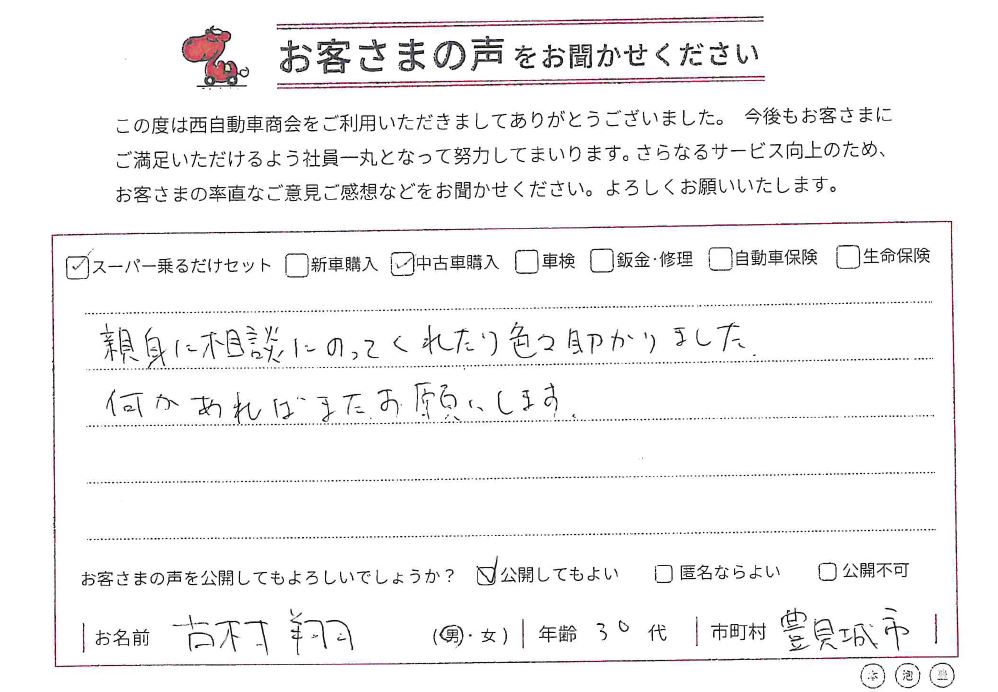 お客さまの声をお聞かせください
この度は西自動車商会をご利用いただきましてありがとうございました。 今後もお客さまに
ご満足いただけるよう社員一丸となって努力してまいります。さらなるサービス向上のため、
お客さまの率直なご意見ご感想などをお聞かせください。よろしくお願いいたします。
スーパー乗るだけセット 新車購入 中古車購入 車検 鈑金・修理 自動車保険 生命保険
親身に相談にのってくれたり色々助かりました.
何かあればまたお願いします.
お客さまの声を公開してもよろしいでしょうか? 公開してもよい 匿名ならよい 公開不可
お名前 吉村 翔 (男・女) 年齢 30 代 市町村 豊見城市
泡